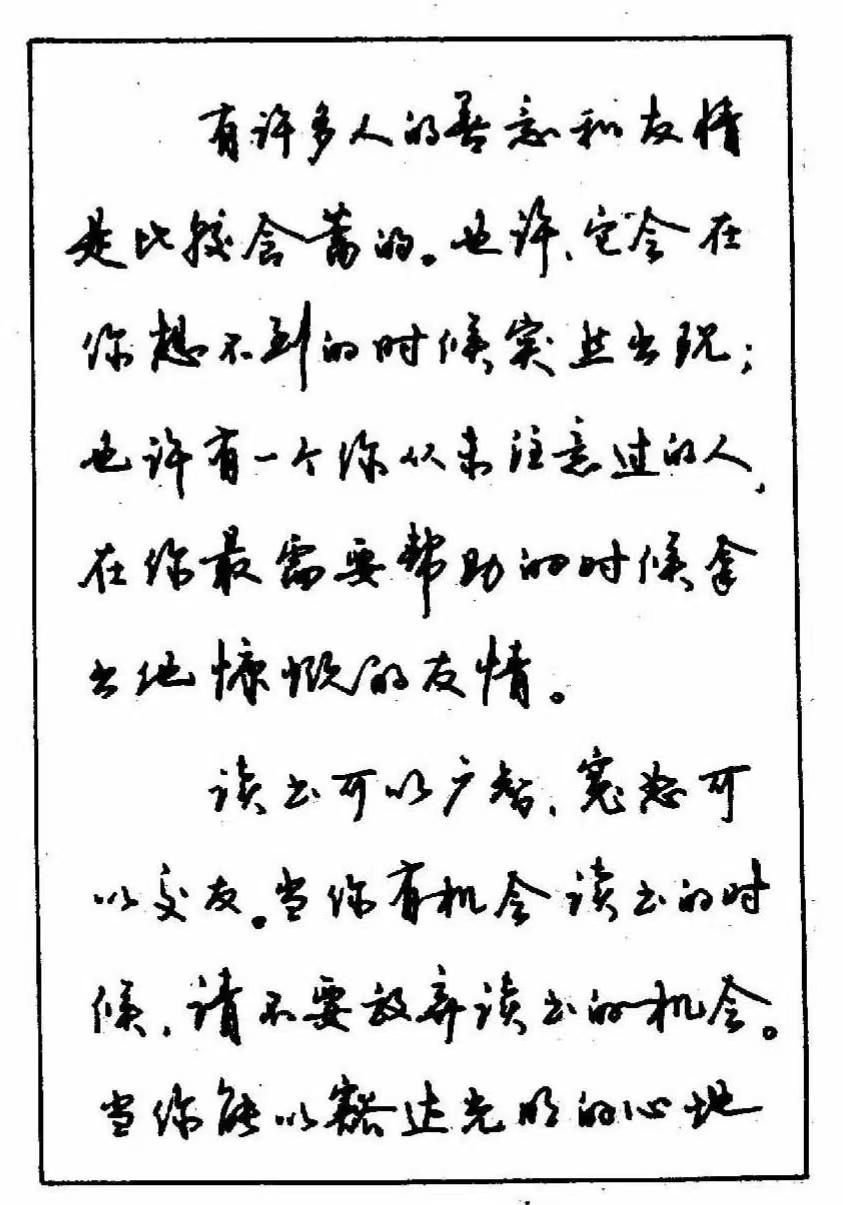 有许多人的善意和友情
是比较含蓄的。也许、它会在
你想不到的时候突然出现；
也许有一个你从未注意过的人，
在你最需要帮助的时候拿
出他慷慨的友情。
读书可以广智、宽恕可
以交友。当你有机会读书的时
候，请不要放弃读书的机会。
当你能以豁达光明的心地